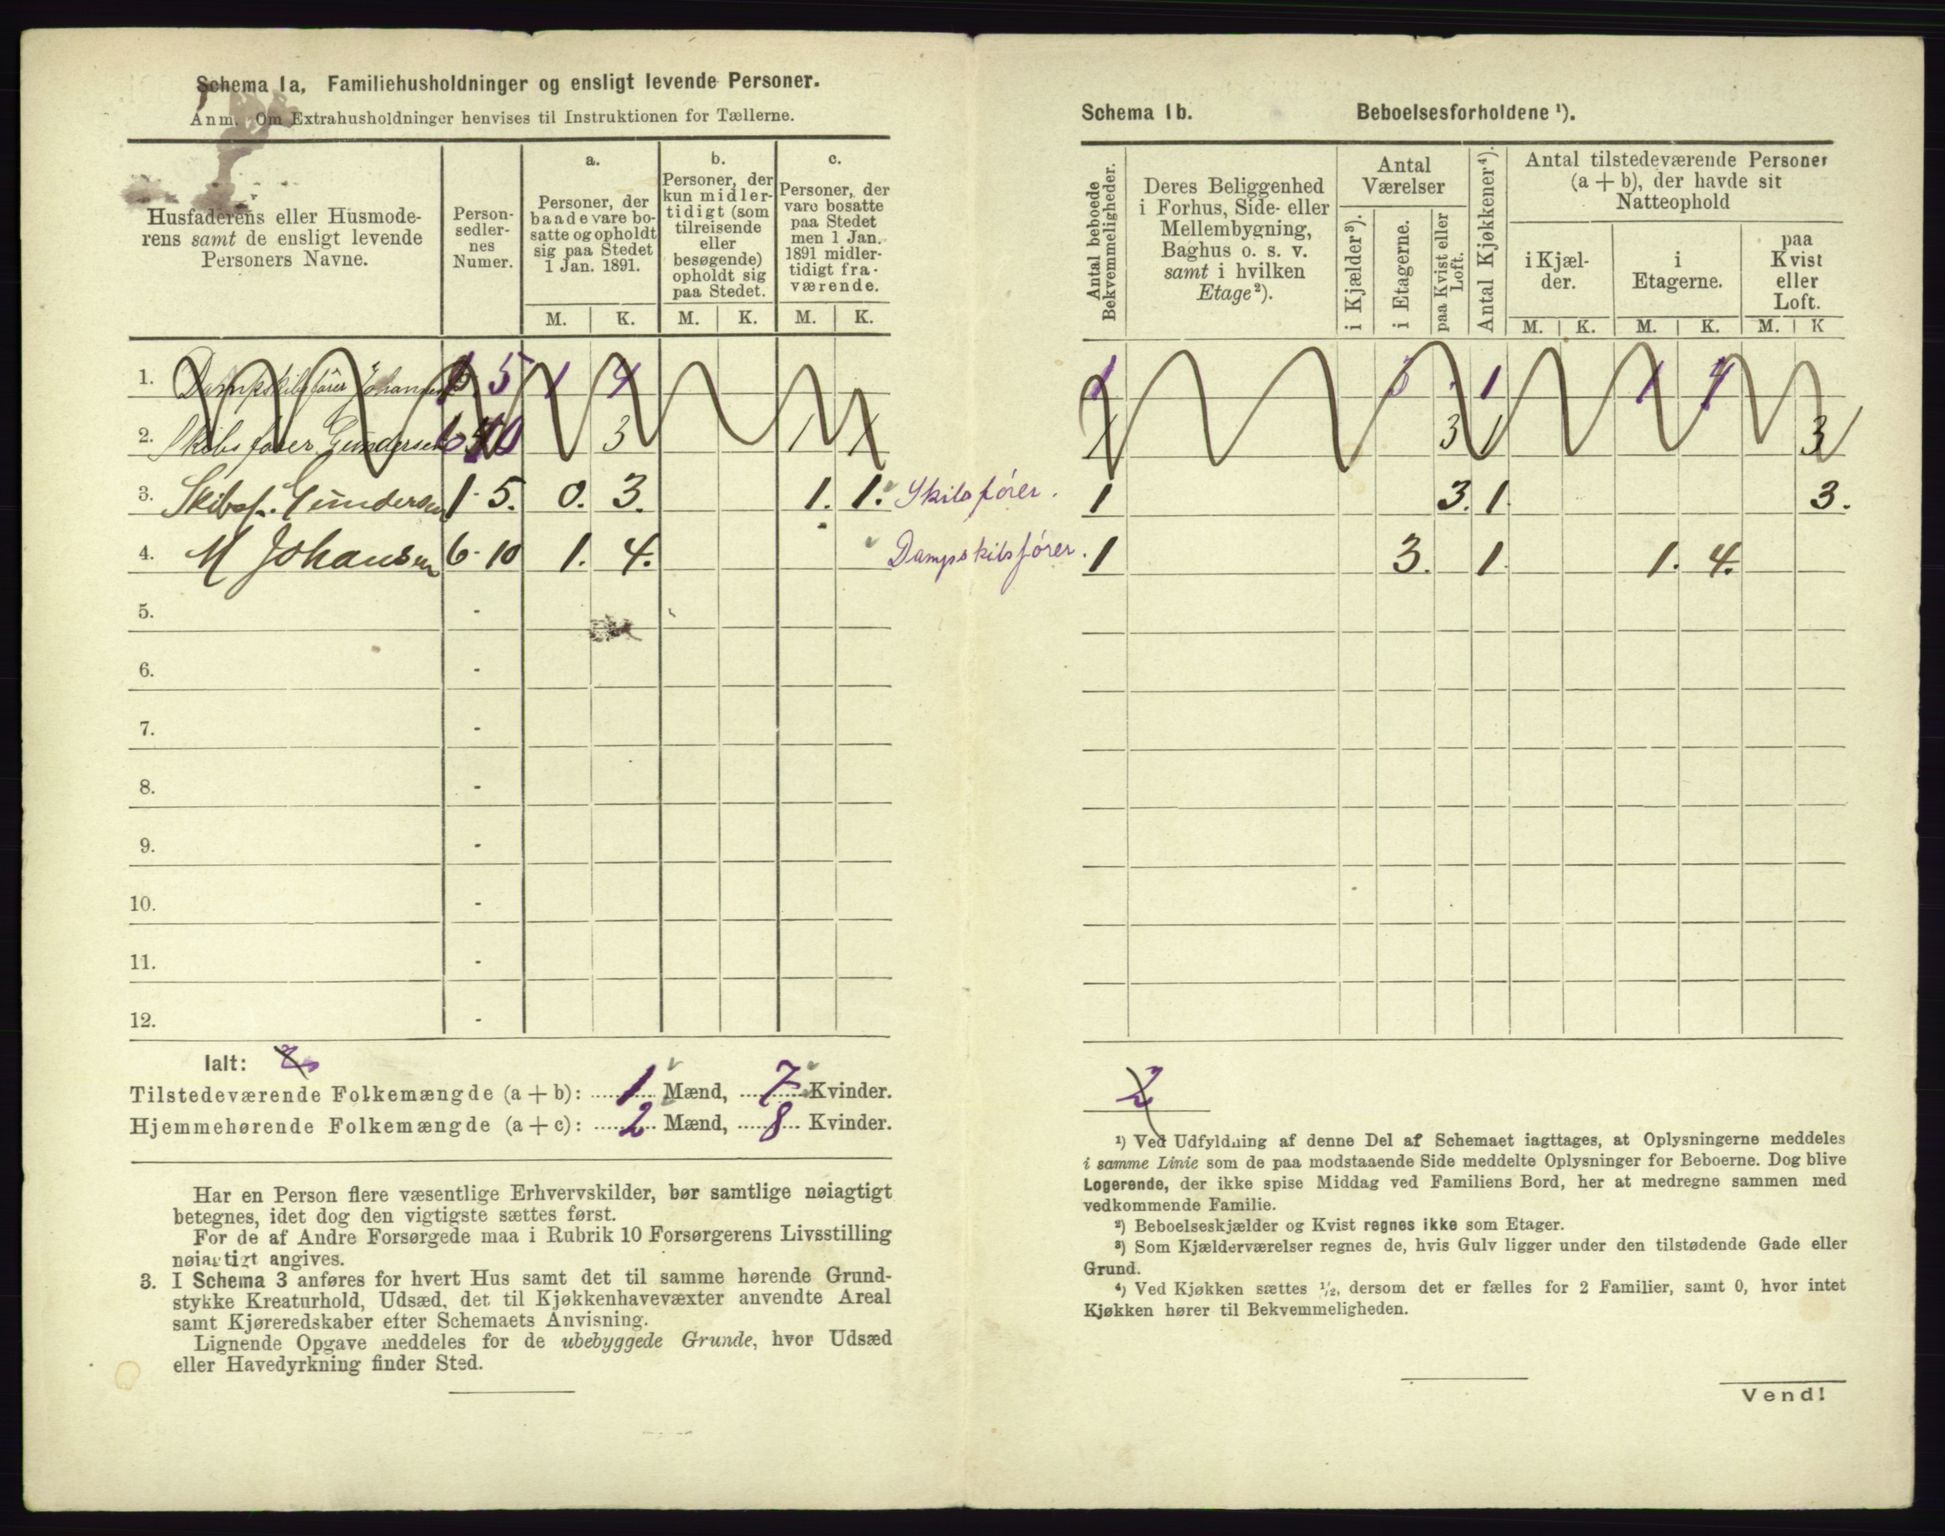 Schema 1a, Familiehusholdninger og ensligt levende Personer.
Anm. Om Extrahusholdninger henvises til Instruktionen for Tællerne.
Husfaderens eller Husmode-
rens samt de ensligt levende
Personers Navne.
Person-
sedler-
nes
Numer.
a.
Personer, der
baade vare bo-
satte og opholdt
sig paa Stedet
1 Jan. 1891.
b.
Personer, der
kun midler-
tidigt (som
tilreisende
eller
besøgende)
opholdt sig
paa Stedet.
c.
Personer, der
vare bosatte
paa Stedet
men 1 Jan.
1891 midler-
tidigt fra-
værende.
M. K. M. K. M. K.
1. Dampskibsfører Johansen 5 1 4
2. Skibsfører Gundersen 3 1 1
3. Skibsf. Gundersen 1-5. 0. 3. 1. 1. Skibsfører.
4. M Johansen 6-10 1. 4. Dampskibsfører.
5. -
6. -
7. -
8. -
9. -
10. -
11. -
12. -
Ialt: 2
Tilstedeværende Folkemængde (a + b): 1 Mænd, 7 Kvinder.
Hjemmehørende Folkemængde (a + c): 2 Mænd, 8 Kvinder.
Har en Person flere væsentlige Erhvervskilder, bør samtlige nøiagtigt
betegnes, idet dog den vigtigste sættes først.
For de af Andre Forsørgede maa i Rubrik 10 Forsørgerens Livsstilling
nøiagtigt angives.
3. I Schema 3 anføres for hvert Hus samt det til samme hørende Grund-
stykke Kreaturhold, Udsæd, det til Kjøkkenhavevæxter anvendte Areal
samt Kjøreredskaber efter Schemaets Anvisning.
Lignende Opgave meddeles for de ubebyggede Grunde, hvor Udsæd
eller Havedyrkning finder Sted.
Schema 1b. Beboelsesforholdene ¹).
Antal beboede
Bekvemmeligheder.
Deres Beliggenhed
i Forhus, Side- eller
Mellembygning,
Baghus o. s. v.
samt i hvilken
Etage²).
Antal
Værelser
i Kjælder³).
i Etagerne.
paa Kvist eller
Loft.
Antal Kjøkkener⁴).
Antal tilstedeværende Personer
(a + b), der havde sit
Natteophold
i Kjæl-
der.
i
Etagerne.
paa
Kvist
eller
Loft.
M. K. M. K. M. K
1 1 1 4
1 3 1 3
1 3. 1. 3.
1 3. 1. 1. 4.
2
¹) Ved Udfyldning af denne Del af Schemaet iagttages, at Oplysningerne meddeles
i samme Linie som de paa modstaaende Side meddelte Oplysninger for Beboerne. Dog blive
Logerende, der ikke spise Middag ved Familiens Bord, her at medregne sammen med
vedkommende Familie.
²) Beboelseskjælder og Kvist regnes ikke som Etager.
³) Som Kjælderværelser regnes de, hvis Gulv ligger under den tilstødende Gade eller
Grund.
⁴) Ved Kjøkken sættes ½, dersom det er fælles for 2 Familier, samt 0, hvor intet
Kjøkken hører til Bekvemmeligheden.
Vend!